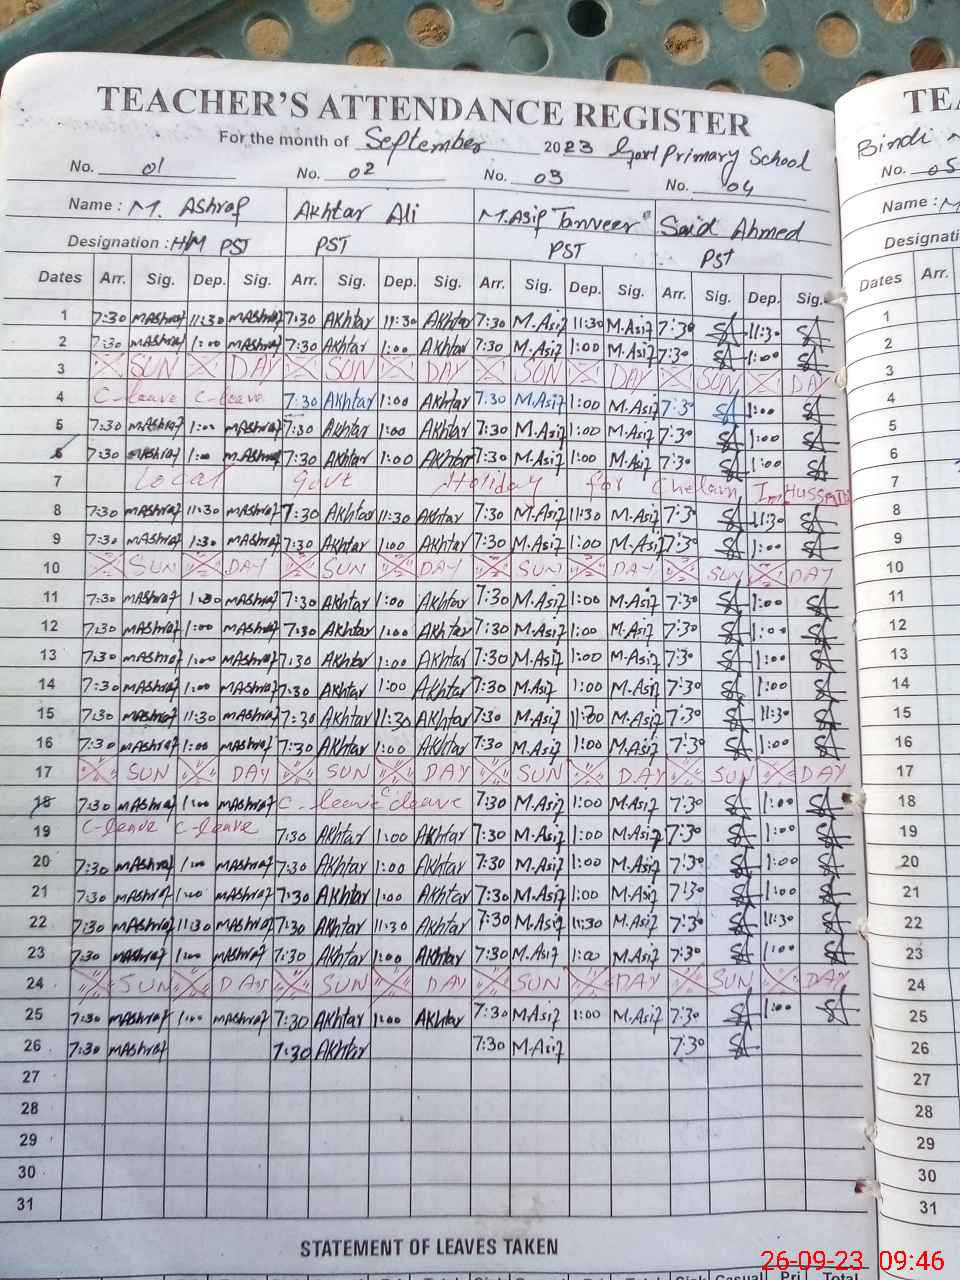 TEACHER'S ATTENDANCE REGISTER
For the month of September 2023 Govt Primary School
No. 01 No. 02 No. 03 No. 04
Name : M. Ashraf Akhtar Ali M. Asif Tanveer Said Ahmed
Designation : H/M PST PST PST PST
Dates Arr. Sig. Dep. Sig. Arr. Sig. Dep. Sig. Arr. Sig. Dep. Sig. Arr. Sig. Dep. Sig.
1 7:30 MAshraf 11:30 MAshraf 7:30 Akhtar 11:30 Akhtar 7:30 M.Asif 11:30 M.Asif 7:30 SA 11:30 SA
2 7:30 MAshraf 1:00 MAshraf 7:30 Akhtar 1:00 Akhtar 7:30 M.Asif 1:00 M.Asif 7:30 SA 1:00 SA
3 SUN DAY SUN DAY SUN DAY SUN DAY
4 C-leave C-leave 7:30 Akhtar 1:00 Akhtar 7:30 M.Asif 1:00 M.Asif 7:30 SA 1:00 SA
5 7:30 MAshraf 1:00 MAshraf 7:30 Akhtar 1:00 Akhtar 7:30 M.Asif 1:00 M.Asif 7:30 SA 1:00 SA
6 7:30 MAshraf 1:00 MAshraf 7:30 Akhtar 1:00 Akhtar 7:30 M.Asif 1:00 M.Asif 7:30 SA 1:00 SA
7 Local Govt Holiday for Chelam Im HUSSAIN
8 7:30 MAshraf 11:30 MAshraf 7:30 Akhtar 11:30 Akhtar 7:30 M.Asif 11:30 M.Asif 7:30 SA 11:30 SA
9 7:30 MAshraf 1:30 MAshraf 7:30 Akhtar 1:00 Akhtar 7:30 M.Asif 1:00 M.Asif 7:30 SA 1:00 SA
10 SUN DAY SUN DAY SUN DAY SUN DAY
11 7:30 MAshraf 1:30 MAshraf 7:30 Akhtar 1:00 Akhtar 7:30 M.Asif 1:00 M.Asif 7:30 SA 1:00 SA
12 7:30 MAshraf 1:00 MAshraf 7:30 Akhtar 1:00 Akhtar 7:30 M.Asif 1:00 M.Asif 7:30 SA 1:00 SA
13 7:30 MAshraf 1:00 MAshraf 7:30 Akhtar 1:00 Akhtar 7:30 M.Asif 1:00 M.Asif 7:30 SA 1:00 SA
14 7:30 MAshraf 1:00 MAshraf 7:30 Akhtar 1:00 Akhtar 7:30 M.Asif 1:00 M.Asif 7:30 SA 1:00 SA
15 7:30 MAshraf 11:30 MAshraf 7:30 Akhtar 11:30 Akhtar 7:30 M.Asif 11:30 M.Asif 7:30 SA 11:30 SA
16 7:30 MAshraf 1:00 MAshraf 7:30 Akhtar 1:00 Akhtar 7:30 M.Asif 1:00 M.Asif 7:30 SA 1:00 SA
17 SUN DAY SUN DAY SUN DAY SUN DAY
18 7:30 MAshraf 1:00 MAshraf C-leave C-leave 7:30 M.Asif 1:00 M.Asif 7:30 SA 1:00 SA
19 C-leave C-leave 7:30 Akhtar 1:00 Akhtar 7:30 M.Asif 1:00 M.Asif 7:30 SA 1:00 SA
20 7:30 MAshraf 1:00 MAshraf 7:30 Akhtar 1:00 Akhtar 7:30 M.Asif 1:00 M.Asif 7:30 SA 1:00 SA
21 7:30 MAshraf 1:00 MAshraf 7:30 Akhtar 1:00 Akhtar 7:30 M.Asif 1:00 M.Asif 7:30 SA 1:00 SA
22 7:30 MAshraf 11:30 MAshraf 7:30 Akhtar 11:30 Akhtar 7:30 M.Asif 11:30 M.Asif 7:30 SA 11:30 SA
23 7:30 MAshraf 1:00 MAshraf 7:30 Akhtar 1:00 Akhtar 7:30 M.Asif 1:00 M.Asif 7:30 SA 1:00 SA
24 SUN DAY SUN DAY SUN DAY SUN DAY
25 7:30 MAshraf 1:00 MAshraf 7:30 Akhtar 1:00 Akhtar 7:30 M.Asif 1:00 M.Asif 7:30 SA 1:00 SA
26 7:30 MAshraf 7:30 Akhtar 7:30 M.Asif 7:30 SA
27
28
29
30
31
STATEMENT OF LEAVES TAKEN
Casual Pri Total
TEA
Bindi
No. 05
Name : M
Designati
Dates Arr.
1
2
3
4
5
6
7
8
9
10
11
12
13
14
15
16
17
18
19
20
21
22
23
24
25
26
27
28
29
30
31
26-09-23 09:46